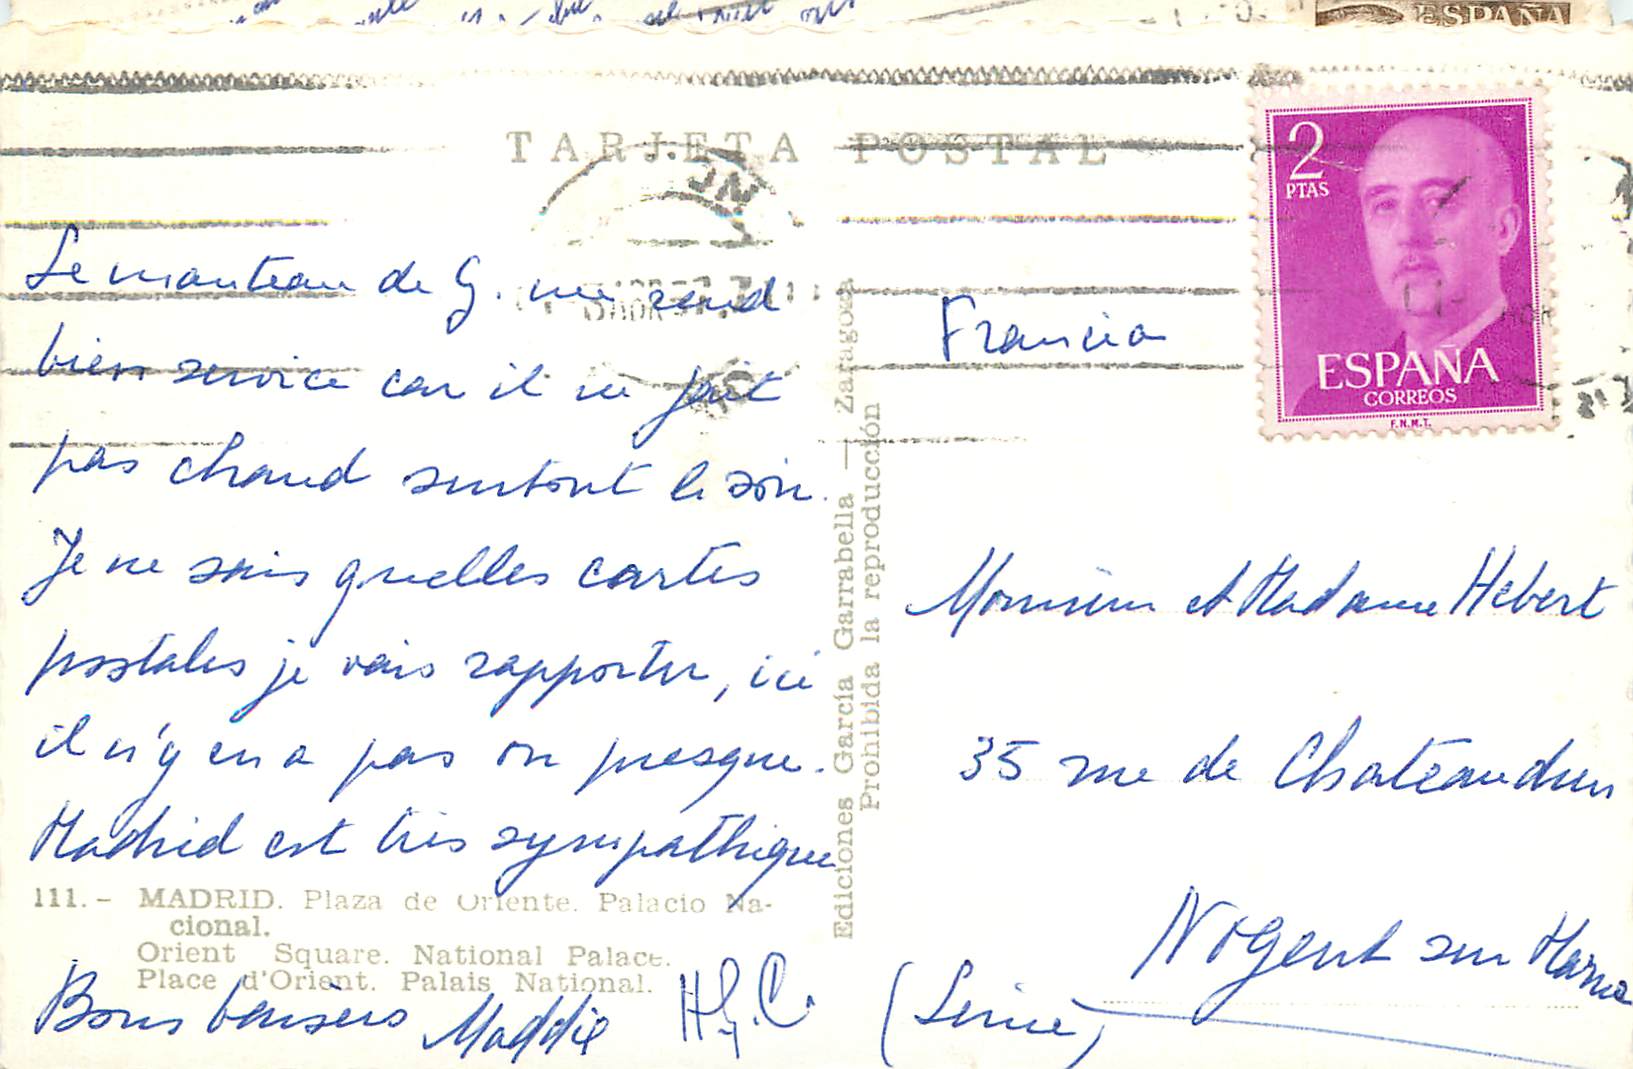 ESPAÑA
TARJETA POSTAL
2
PTAS
ESPAÑA
CORREOS
F.N.M.T.
Le manteau de G. me rend
bien service car il ne fait
pas chaud surtout le soir.
Je ne sais quelles cartes
postales je vais rapporter, ici
il n'y en a pas ou presque.
Madrid est très sympathique
111.- MADRID. Plaza de Oriente. Palacio Na-
cional.
Orient Square. National Palace.
Place d'Orient. Palais National.
Bons baisers Maddie
Ediciones García Garrabella — Zaragoza
Prohibida la reproducción
Francia
Monsieur et Madame Hébert
35 rue de Chateaudun
Nogent sur Marne
(Seine)